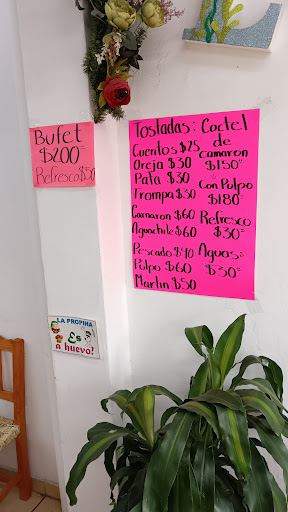 Bufet
$200=
Refresco $50
Tostadas:
Cueritos $25
Oreja $30
Pata $30
Trompa $30
Camaron $60
Aguachile $60
Pescado $40
Pulpo $60
Marlin $50
Coctel
de
camaron
$150=
Con Pulpo
$180=
Refresco
$30=
Aguas:
$30=
LA PROPINA
Es
a huevo!